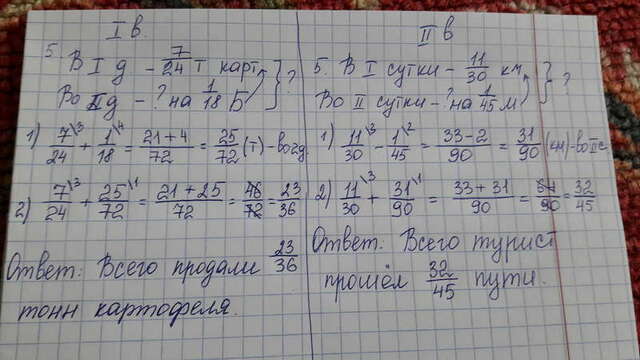 I в.
5. В I д – 7/24 т карт } ?
Во II д – ? на 1/18 Б
1) 7\3/24 + 1\4/18 = 21+4/72 = 25/72 (т) – во II д.
2) 7\3/24 + 25/72 = 21+25/72 = 46/72 = 23/36
Ответ: Всего продали 23/36
тонн картофеля.
II в
5. В I сутки – 11/30 км } ?
Во II сутки – ? на 1/45 М
1) 11\3/30 – 1\2/45 = 33–2/90 = 31/90 (км) – во II с.
2) 11\3/30 + 31\1/90 = 33+31/90 = 64/90 = 32/45
Ответ: Всего турист
прошёл 32/45 пути.